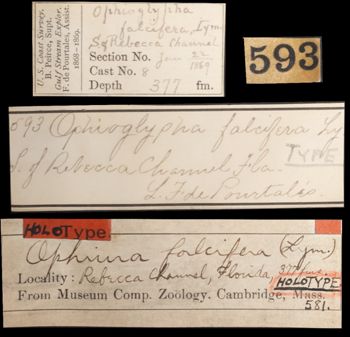 U. S. Coast Survey.
B. Peirce, Supt.
Gulf Stream Explor.
F. de Pourtales, Assist.
1868-1869.
Ophioglypha
falcifera, Lym.
S of Rebecca Channel
Section No. Jan 22
1869
Cast No. 8
Depth 377 fm.
593
Ophioglypha falcifera Ly
TYPE
S. of Rebecca Channel Fla.
L. F. de Pourtalès.
HOLOType
Ophiura falcifera (Lym.)
Locality: Rebecca Channel, Florida,
HOLOTYPE
From Museum Comp. Zoology. Cambridge, Mass.
581.